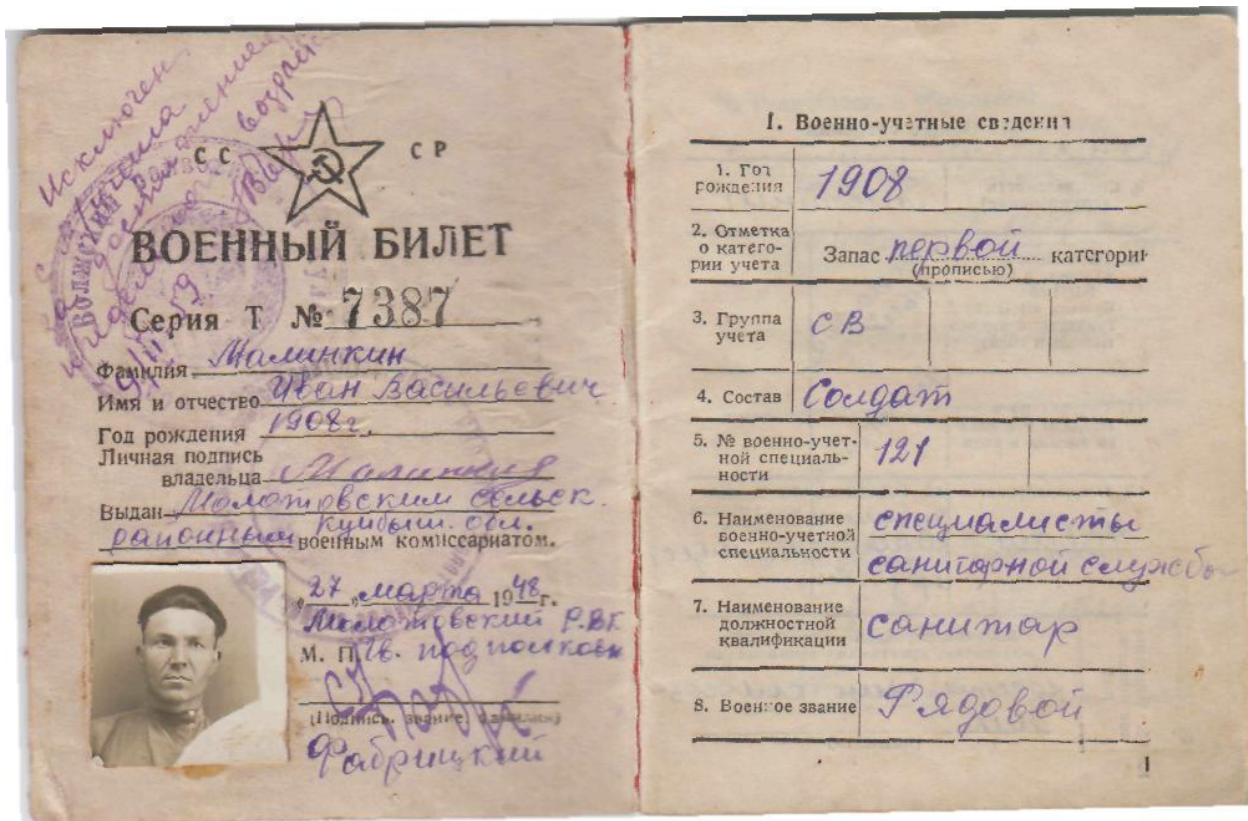 Исключен
с учета
в связи с достижением
предельного возраста
9/II 59
ВОЛЖСКИЙ РАЙВОЕН
СС СР
ВОЕННЫЙ БИЛЕТ
Серия Т № 7387
Фамилия Малинкин
Имя и отчество Иван Васильевич
Год рождения 1908г.
Личная подпись
владельца Малинкин
Выдан Молотовским сельск.
районным Куйбыш. обл. военным комиссариатом.
„27„ марта 1948 г.
Молотовский РВК
М. П. подполков
(Подпись, звание, фамилия)
Фабрицкий
I. Военно-учетные сведения
1. Год рождения 1908
2. Отметка о категории учета Запас первой категории
(прописью)
3. Группа учета СВ
4. Состав Солдат
5. № военно-учет-
ной специаль-
ности 121
6. Наименование специалисты
военно-учетной
специальности санитарной службы
7. Наименование
должностной
квалификации санитар
8. Военное звание Рядовой
1